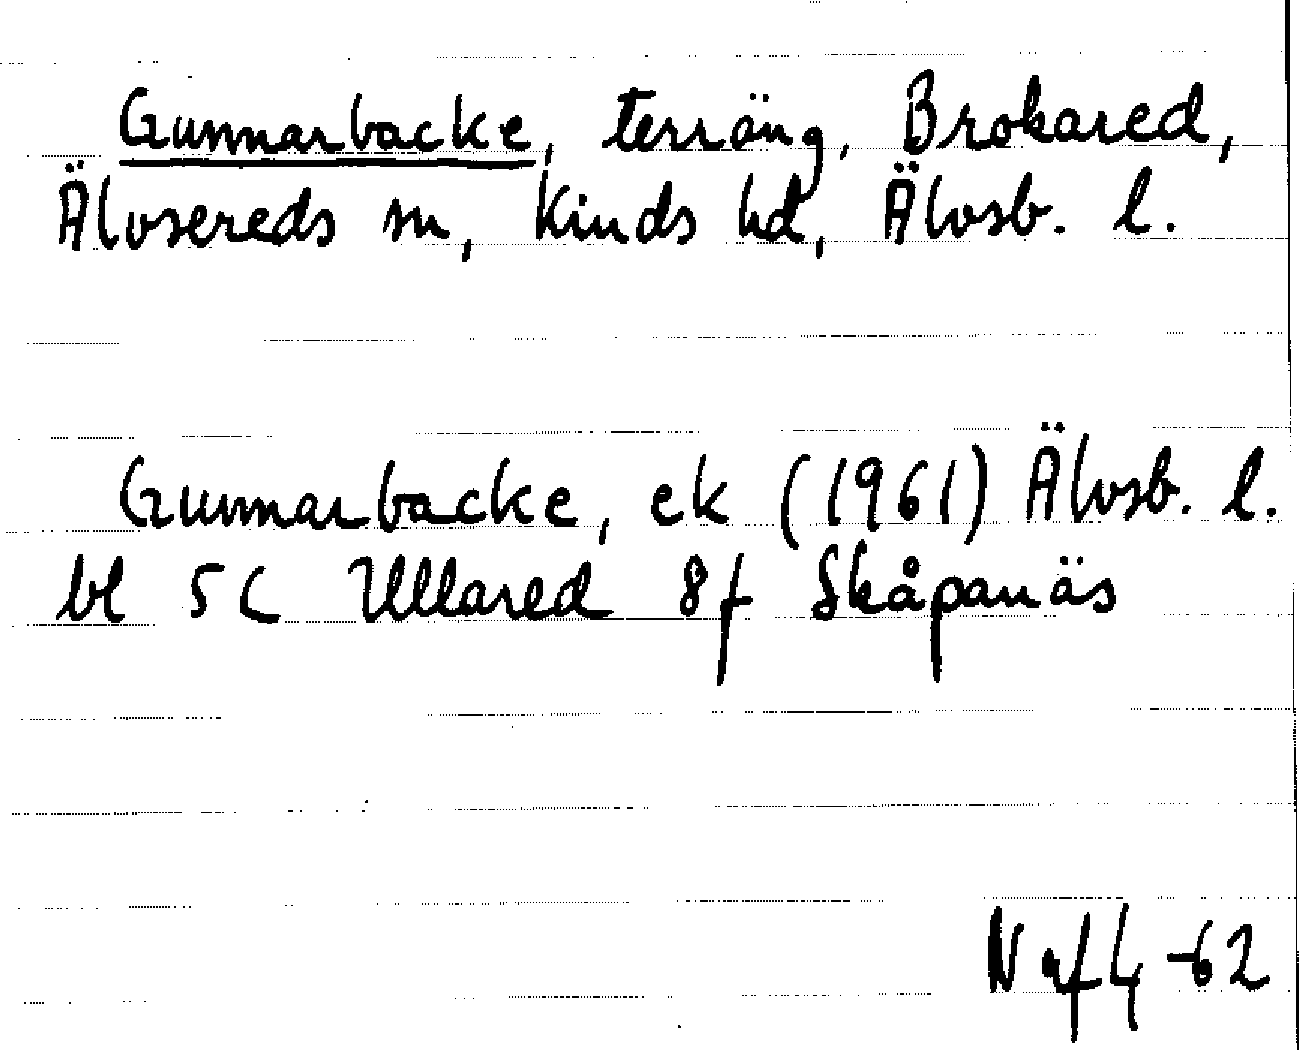 Gunnarbacke, terräng, Brokared,
Älvsereds sn, Kinds hd, Älvsb. l.
Gunnarbacke, ek (1961) Älvsb. l.
bl 5C Ullared 8f Skåpanäs
N af 4 -62